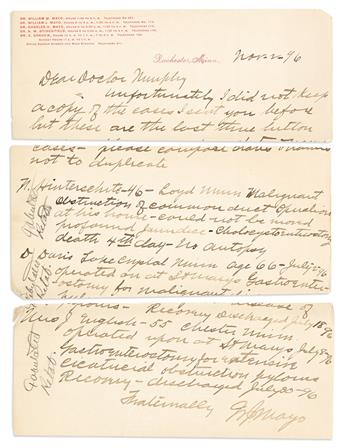 DR. WILLIAM W. MAYO,
DR. WILLIAM J. MAYO,
DR. CHARLES H. MAYO,
DR. A. W. STINCHFIELD,
DR. C. GRAHAM,
Rochester, Minn. Nov-2-96
Dear Doctor Murphy
Unfortunately I did not keep
a copy of the cases I sent you before
but these are the last three button
cases- please compare
not to duplicate
46- Boyd Minn Malignant
obstruction of common duct Operations
at his house- could not be moved
profound jaundice- cholecystenterostomy
death 4th day- No autopsy
D Davis Lake Crystal Minn age 66- July
operated on at St Marys Gastroenter-
ostomy for malignant
disease of
Recovery Discharged July 18 96
Mrs J English- 55 Chester Minn
operated upon at St Marys July
Gastroenterostomy for extensive
cicatricial obstruction pylorus
Recovery- discharged July 30-96
Fraternally WJMayo
Tabulated